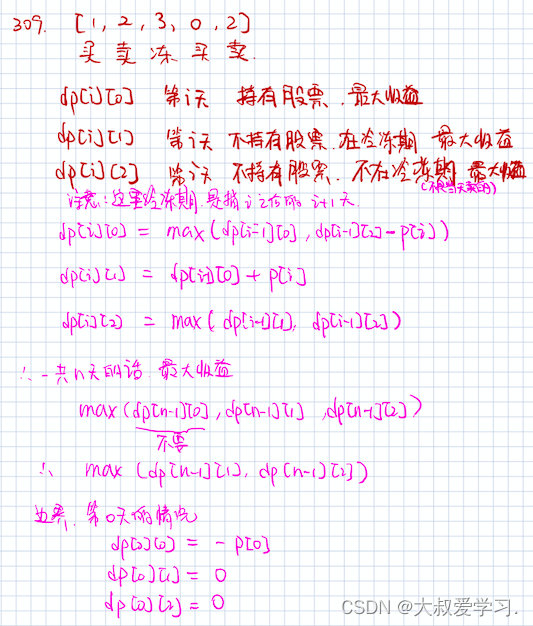 309. [1, 2, 3, 0, 2]
买 卖 冻 买 卖.
dp[i][0] 第i天 持有股票. 最大收益
dp[i][1] 第i天 不持有股票. 在冷冻期 最大收益
dp[i][2] 第i天 不持有股票. 不在冷冻期 最大收益
注意: 这里冷冻期 是指 i 之后的 i+1天.
dp[i][0] = max(dp[i-1][0], dp[i-1][2] - p[i])
dp[i][1] = dp[i-1][0] + p[i]
dp[i][2] = max( dp[i-1][1], dp[i-1][2])
∴ 一共n天的话. 最大收益
max(dp[n-1][0], dp[n-1][1], dp[n-1][2])
不要
∴ max (dp[n-1][1], dp[n-1][2])
边界. 第0天的情况
dp[0][0] = - p[0]
dp[0][1] = 0
dp[0][2] = 0
CSDN @大叔爱学习.